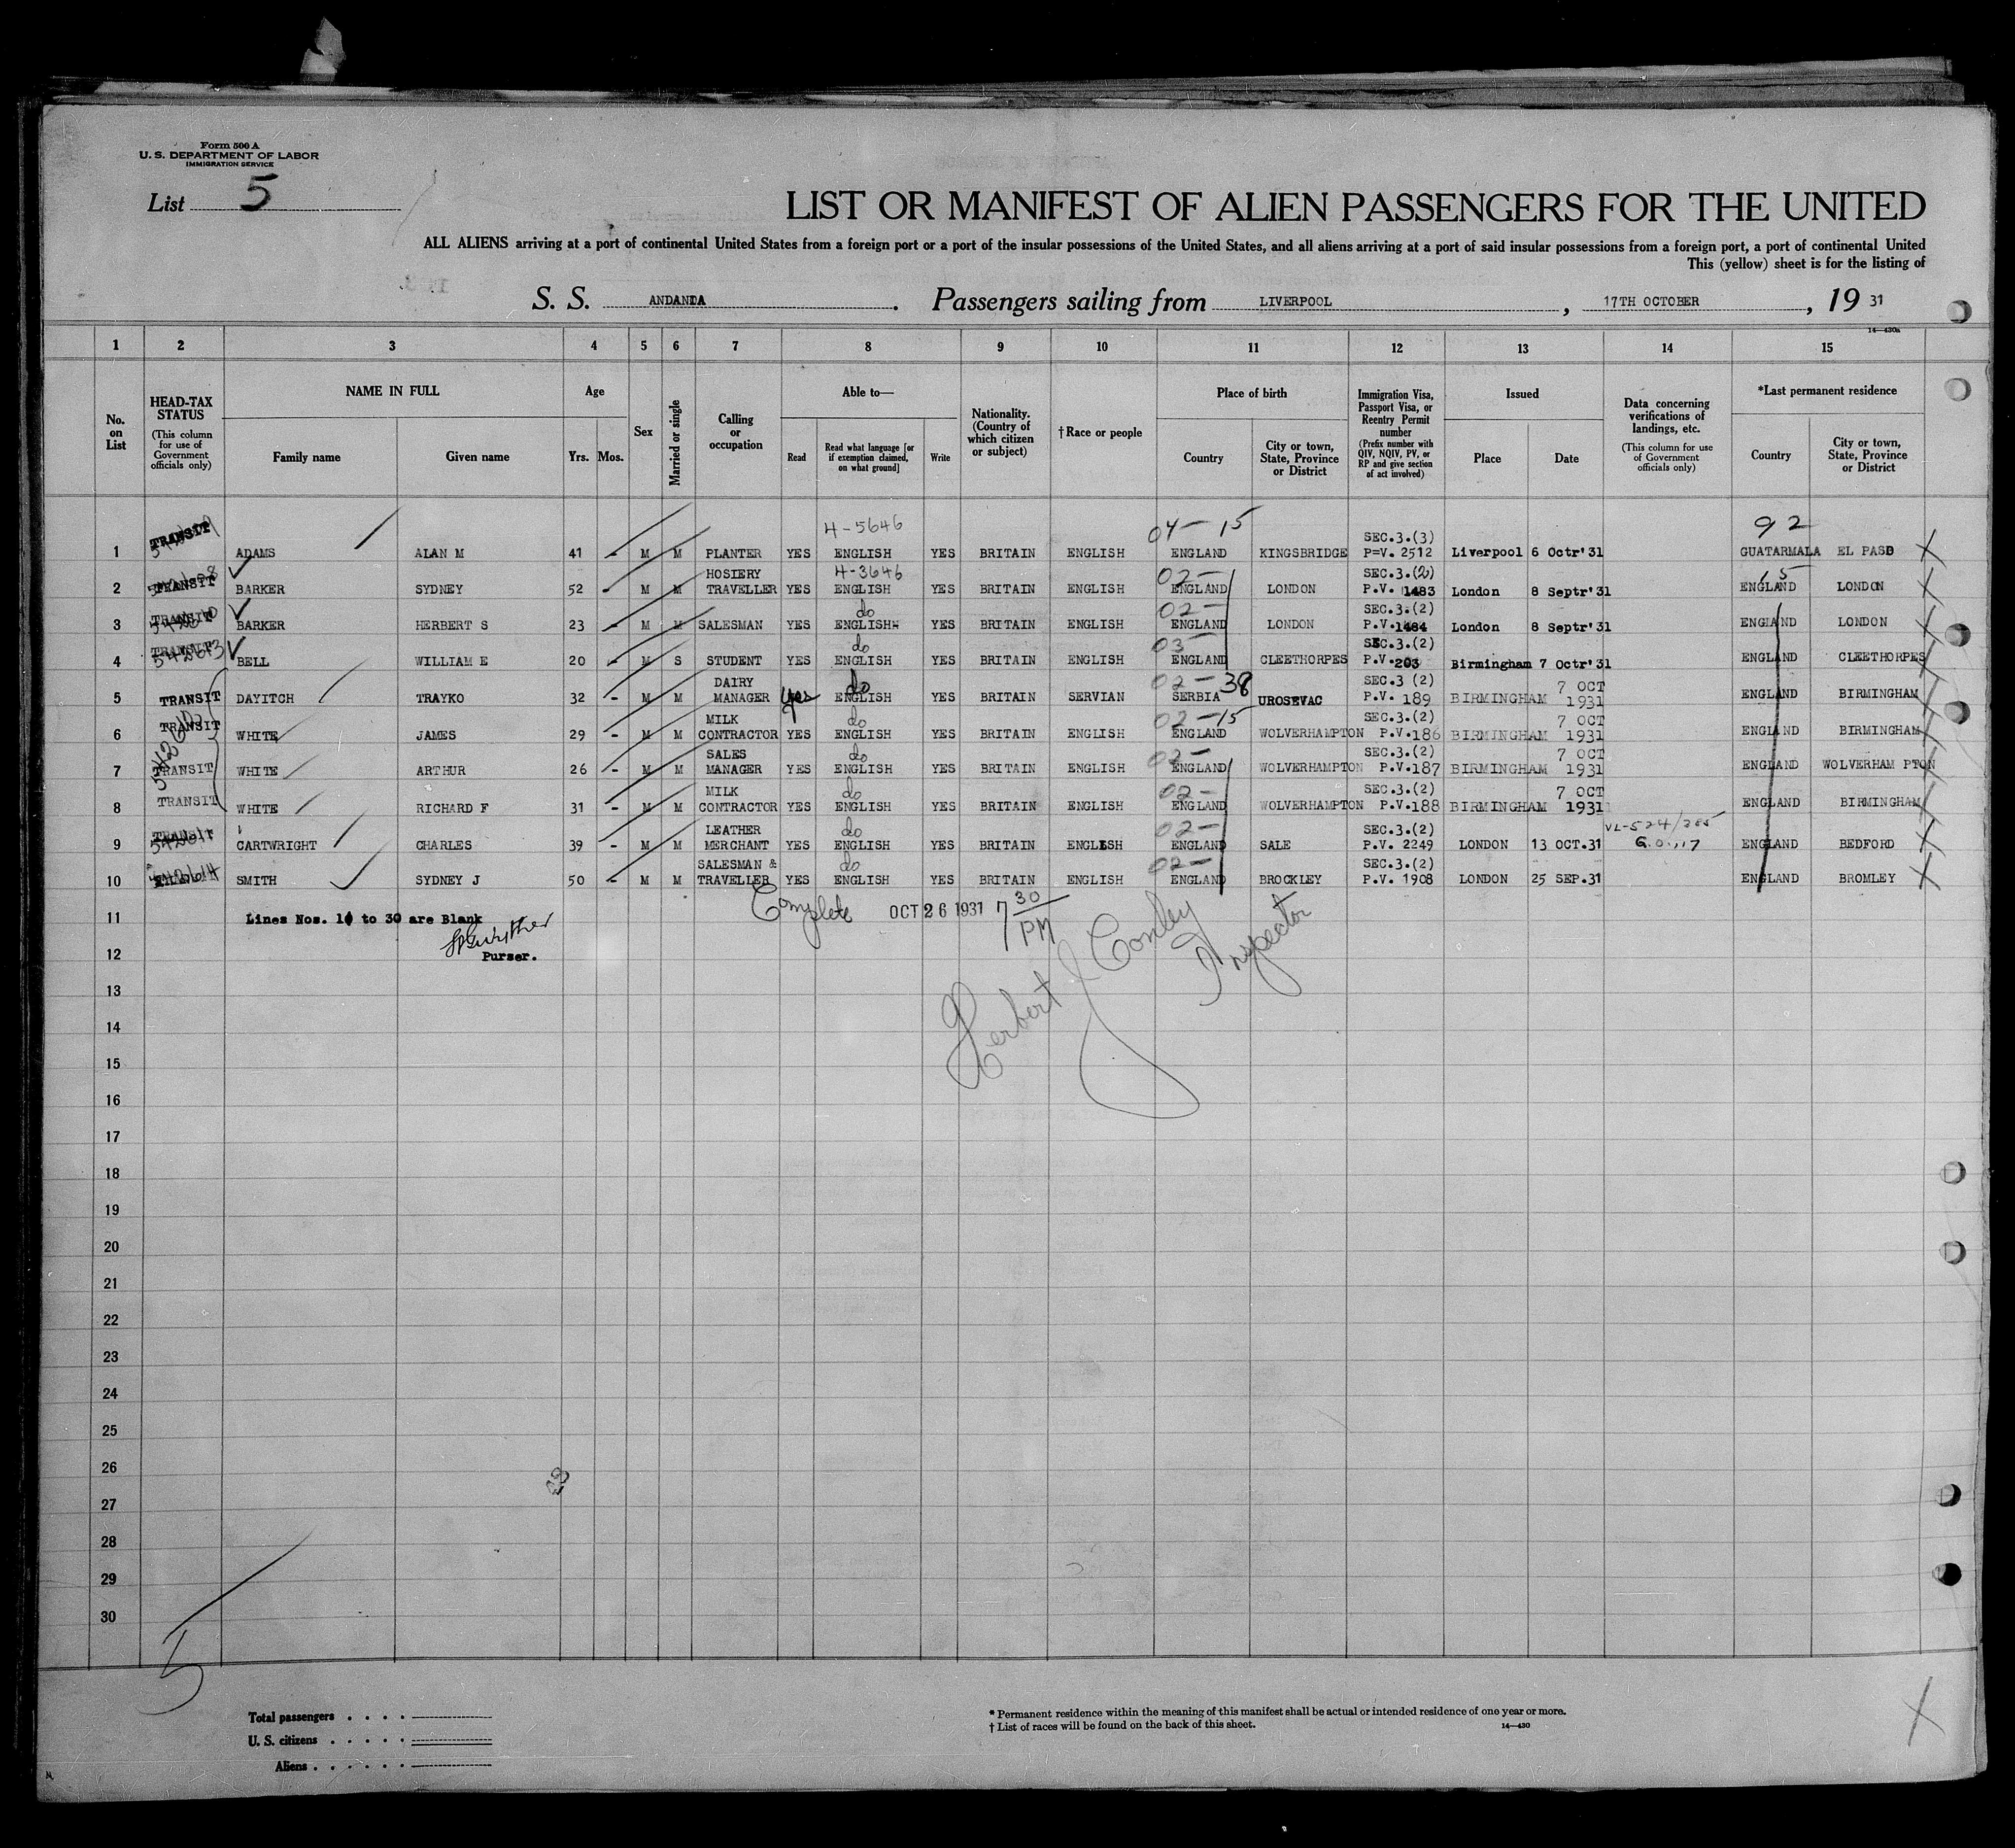 Form 500 A
U. S. DEPARTMENT OF LABOR
IMMIGRATION SERVICE
List 5
LIST OR MANIFEST OF ALIEN PASSENGERS FOR THE UNITED
ALL ALIENS arriving at a port of continental United States from a foreign port or a port of the insular possessions of the United States, and all aliens arriving at a port of said insular possessions from a foreign port, a port of continental United
This (yellow) sheet is for the listing of
S. S. ANDANIA . Passengers sailing from LIVERPOOL , 17TH OCTOBER , 19 31
14—430a
1 2 3 4 5 6 7 8 9 10 11 12 13 14 15
No. on List
HEAD-TAX STATUS (This column for use of Government officials only)
NAME IN FULL
Family name Given name
Age
Yrs. Mos.
Sex
Married or single
Calling or occupation
Able to—
Read
Read what language [or if exemption claimed, on what ground]
Write
Nationality. (Country of which citizen or subject)
†Race or people
Place of birth
Country
City or town, State, Province or District
Immigration Visa, Passport Visa, or Reentry Permit number (Prefix number with QIV, NQIV, PV, or RP and give section of act involved)
Issued
Place Date
Data concerning verifications of landings, etc. (This column for use of Government officials only)
*Last permanent residence
Country
City or town, State, Province or District
4-5646 04-15 SEC.3.(3) 92
1 TRANSIT ADAMS ALAN M 41 - M M PLANTER YES ENGLISH YES BRITAIN ENGLISH ENGLAND KINGSBRIDGE P=V. 2512 Liverpool 6 Octr'31 GUATARMALA EL PASO X
HOSIERY 4-3646 02- SEC.3.(2) 15
2 TRANSIT BARKER SYDNEY 52 - M M TRAVELLER YES ENGLISH YES BRITAIN ENGLISH ENGLAND LONDON P.V. 1483 London 8 Septr'31 ENGLAND LONDON X
do 02- SEC.3.(2)
3 TRANSIT BARKER HERBERT S 23 - M M SALESMAN YES ENGLISH YES BRITAIN ENGLISH ENGLAND LONDON P.V.1484 London 8 Septr'31 ENGLAND LONDON X
do 03- SEC.3.(2)
4 TRANSIT 542613 BELL WILLIAM E 20 - M S STUDENT YES ENGLISH YES BRITAIN ENGLISH ENGLAND CLEETHORPES P.V.203 Birmingham 7 Octr'31 ENGLAND CLEETHORPES X
DAIRY do 02-38 SEC.3 (2) 7 OCT
5 TRANSIT DAYITCH TRAYKO 32 - M M MANAGER Yes ENGLISH YES BRITAIN SERVIAN SERBIA UROSEVAC P.V. 189 BIRMINGHAM 1931 ENGLAND BIRMINGHAM X
MILK do 02-15 SEC.3.(2) 7 OCT
6 TRANSIT WHITE JAMES 29 - M M CONTRACTOR YES ENGLISH YES BRITAIN ENGLISH ENGLAND WOLVERHAMPTON P.V.186 BIRMINGHAM 1931 ENGLAND BIRMINGHAM X
SALES do 02- SEC.3.(2) 7 OCT
7 TRANSIT WHITE ARTHUR 26 - M M MANAGER YES ENGLISH YES BRITAIN ENGLISH ENGLAND WOLVERHAMPTON P.V.187 BIRMINGHAM 1931 ENGLAND WOLVERHAM PTON X
MILK do 02- SEC.3.(2) 7 OCT
8 TRANSIT WHITE RICHARD F 31 - M M CONTRACTOR YES ENGLISH YES BRITAIN ENGLISH ENGLAND WOLVERHAMPTON P.V.188 BIRMINGHAM 1931 ENGLAND BIRMINGHAM X
LEATHER do 02- SEC.3.(2)
9 TRANSIT 542611 CARTWRIGHT CHARLES 39 - M M MERCHANT YES ENGLISH YES BRITAIN ENGLISH ENGLAND SALE P.V. 2249 LONDON 13 OCT.31 ENGLAND BEDFORD X
SALESMAN & do 02- SEC.3.(2)
10 SMITH SYDNEY J 50 - M M TRAVELLER YES ENGLISH YES BRITAIN ENGLISH ENGLAND BROCKLEY P.V. 1908 LONDON 25 SEP.31 ENGLAND BROMLEY X
11 Lines Nos. 11 to 30 are Blank Complete OCT 26 1931 7 30 PM
12 Purser. Herbert J Conley Inspector
13
14
15
16
17
18
19
20
21
22
23
24
25
26
27
28
29
30
5
Total passengers
U. S. citizens
Aliens
* Permanent residence within the meaning of this manifest shall be actual or intended residence of one year or more.
† List of races will be found on the back of this sheet. 14—430
X